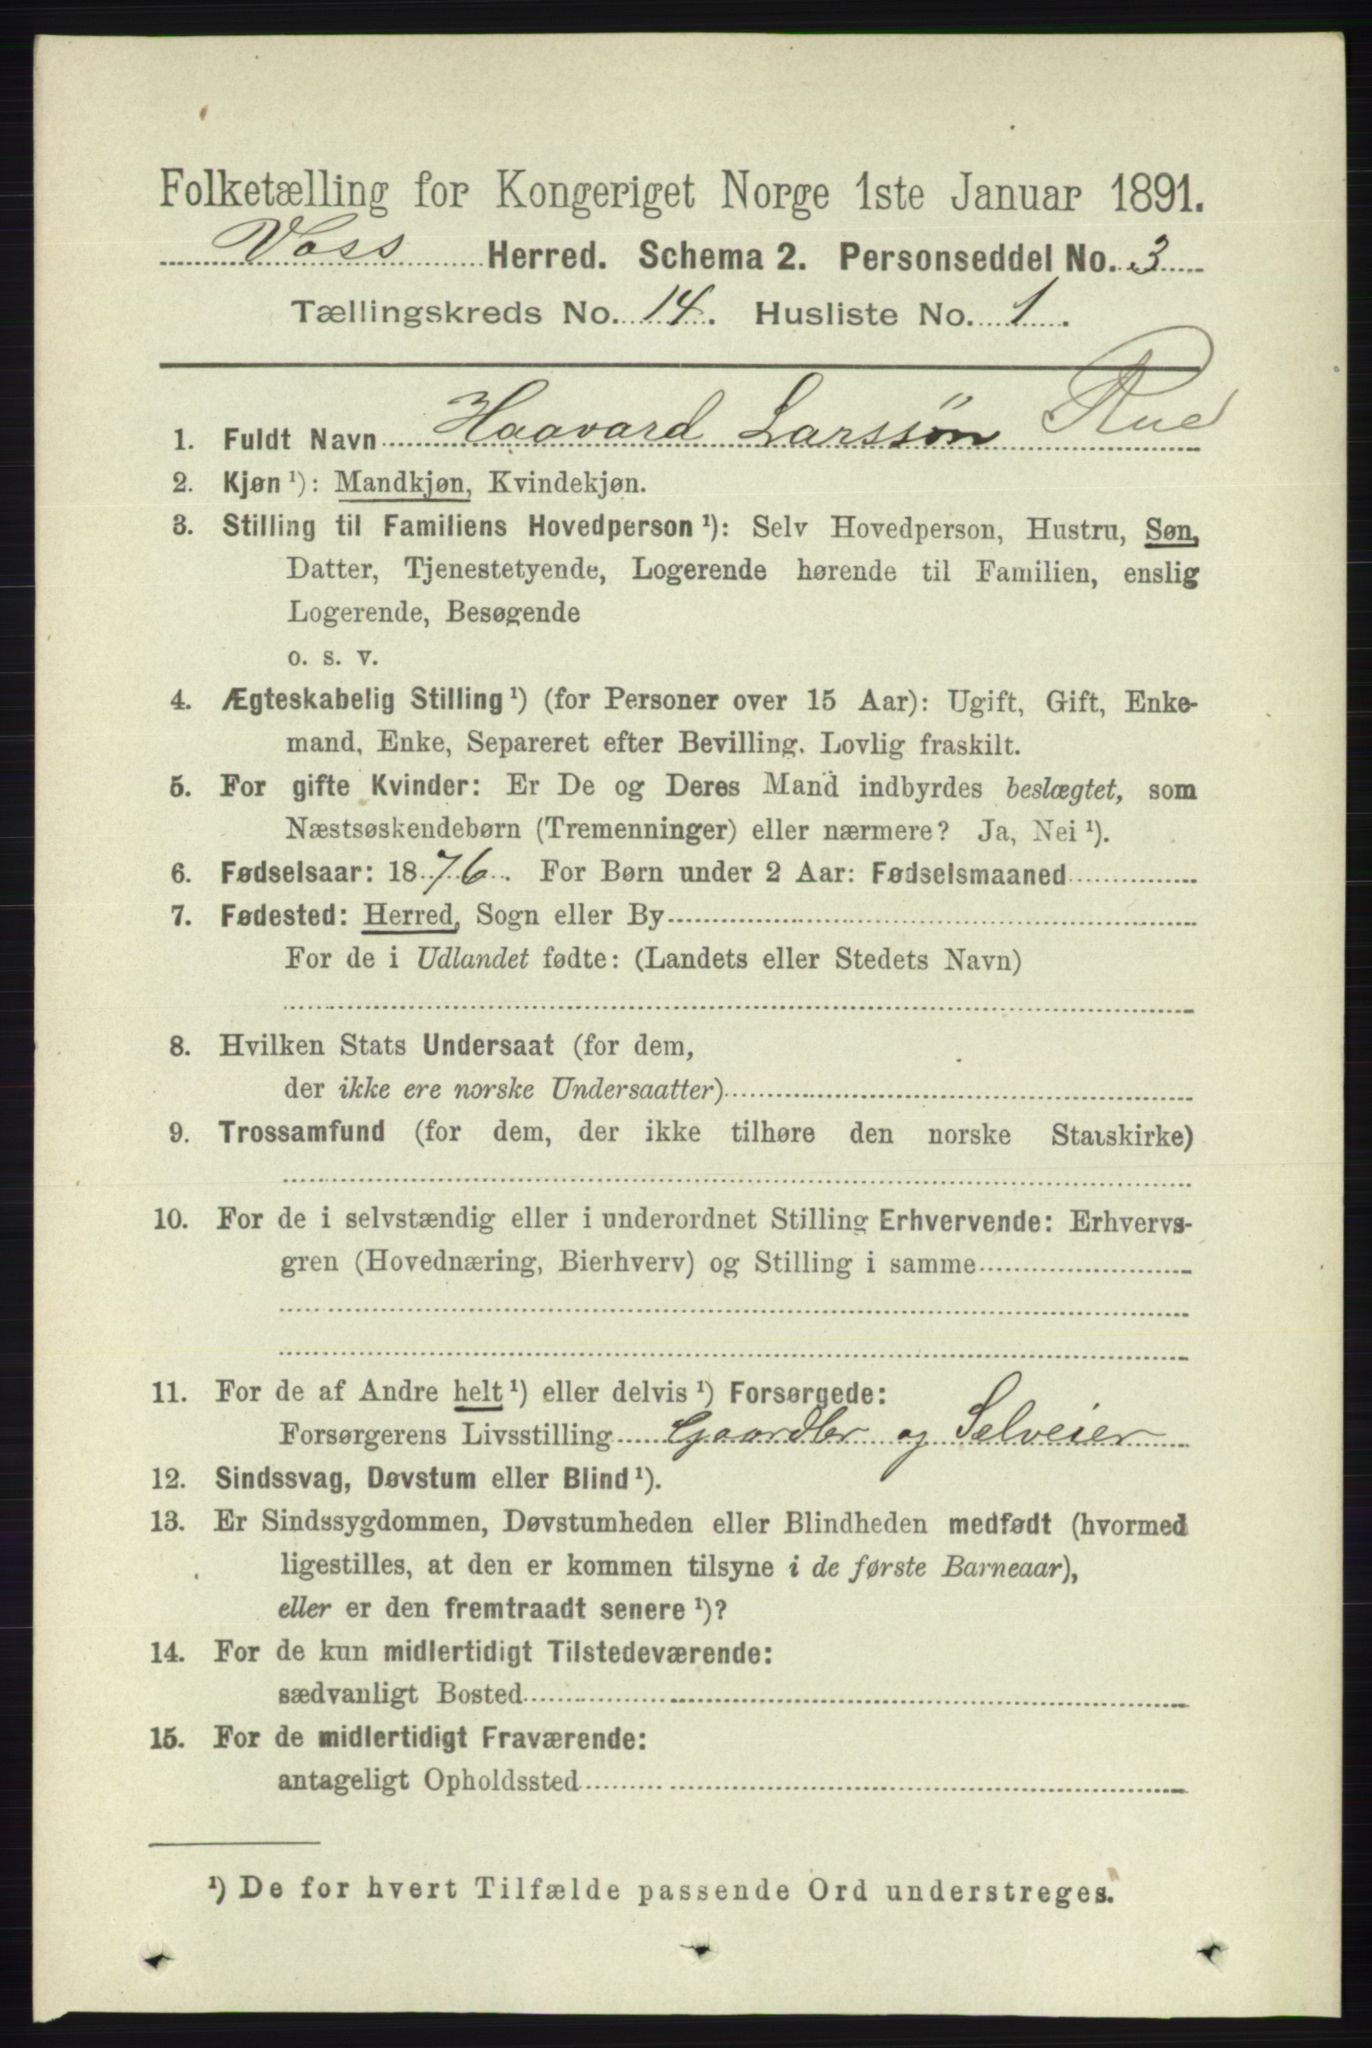 Folketælling for Kongeriget Norge 1ste Januar 1891.
Voss Herred. Schema 2. Personseddel No. 3
Tællingskreds No. 14. Husliste No. 1.
1. Fuldt Navn Haavard Larssön Rue
2. Kjøn ¹): Mandkjøn, Kvindekjøn.
3. Stilling til Familiens Hovedperson ¹): Selv Hovedperson, Hustru, Søn,
Datter, Tjenestetyende, Logerende hørende til Familien, enslig
Logerende, Besøgende
o. s. v.
4. Ægteskabelig Stilling ¹) (for Personer over 15 Aar): Ugift, Gift, Enke-
mand, Enke, Separeret efter Bevilling. Lovlig fraskilt.
5. For gifte Kvinder: Er De og Deres Mand indbyrdes beslægtet, som
Næstsøskendebørn (Tremenninger) eller nærmere? Ja, Nei ¹).
6. Fødselsaar: 1876. For Børn under 2 Aar: Fødselsmaaned
7. Fødested: Herred, Sogn eller By
For de i Udlandet fødte: (Landets eller Stedets Navn)
8. Hvilken Stats Undersaat (for dem,
der ikke ere norske Undersaatter)
9. Trossamfund (for dem, der ikke tilhøre den norske Statskirke)
10. For de i selvstændig eller i underordnet Stilling Erhvervende: Erhvervs-
gren (Hovednæring, Bierhverv) og Stilling i samme
11. For de af Andre helt ¹) eller delvis ¹) Forsørgede:
Forsørgerens Livsstilling Gaardbr og Selveier
12. Sindssvag, Døvstum eller Blind ¹).
13. Er Sindssygdommen, Døvstumheden eller Blindheden medfødt (hvormed
ligestilles, at den er kommen tilsyne i de første Barneaar),
eller er den fremtraadt senere ¹)?
14. For de kun midlertidigt Tilstedeværende:
sædvanligt Bosted
15. For de midlertidigt Fraværende:
antageligt Opholdssted
¹) De for hvert Tilfælde passende Ord understreges.